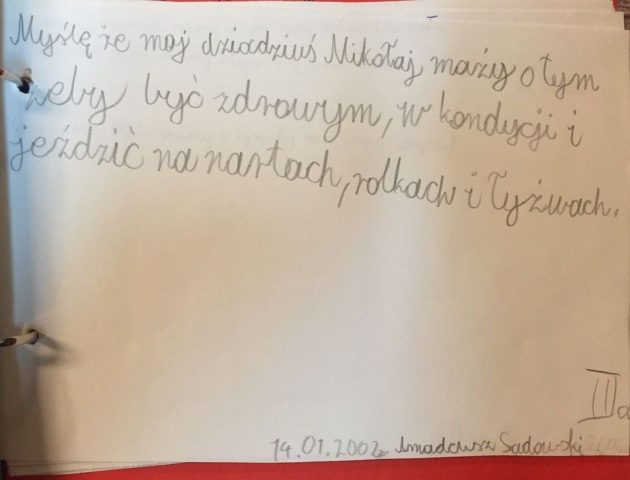 Myślę że moj dziadziuś Mikołaj maży o tym
żeby być zdrowym, w kondycji i
jeździć na nartach, rolkach i łyżwach.
II a
14.01.2002r Amadeusz Sadowski